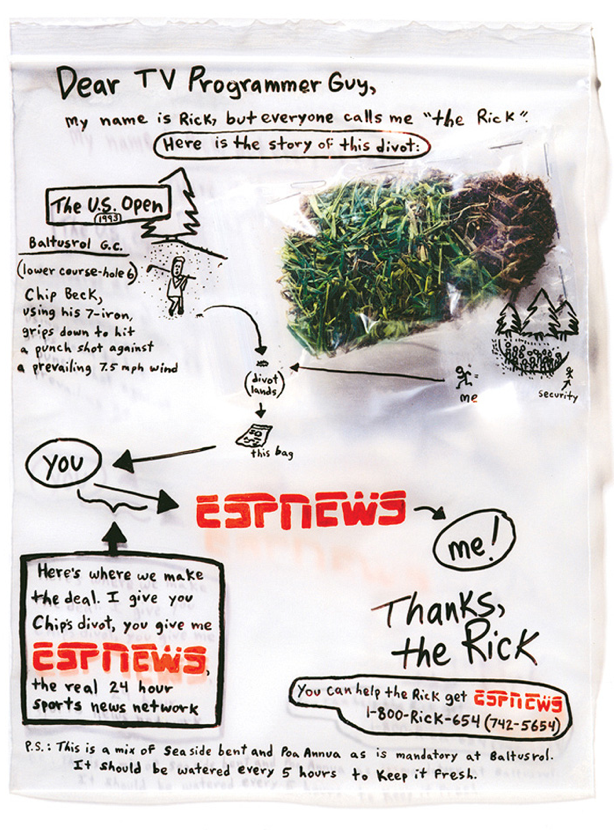 Dear TV Programmer Guy,
my name is Rick, but everyone calls me "the Rick".
Here is the story of this divot:
The U.S. Open
1993
Baltusrol G.C.
(lower course-hole 6)
Chip Beck,
using his 7-iron,
grips down to hit
a punch shot against
a prevailing 7.5 mph wind
(divot
lands)
me
security
this bag
you
ESPNEWS
me!
Here's where we make
the deal. I give you
Chip's divot, you give me
ESPNEWS,
the real 24 hour
sports news network
Thanks,
the Rick
You can help the Rick get ESPNEWS
1-800-RicK-654 (742-5654)
P.S.: This is a mix of Seaside bent and Poa Annua as is mandatory at Baltusrol.
It should be watered every 5 hours to Keep it Fresh.